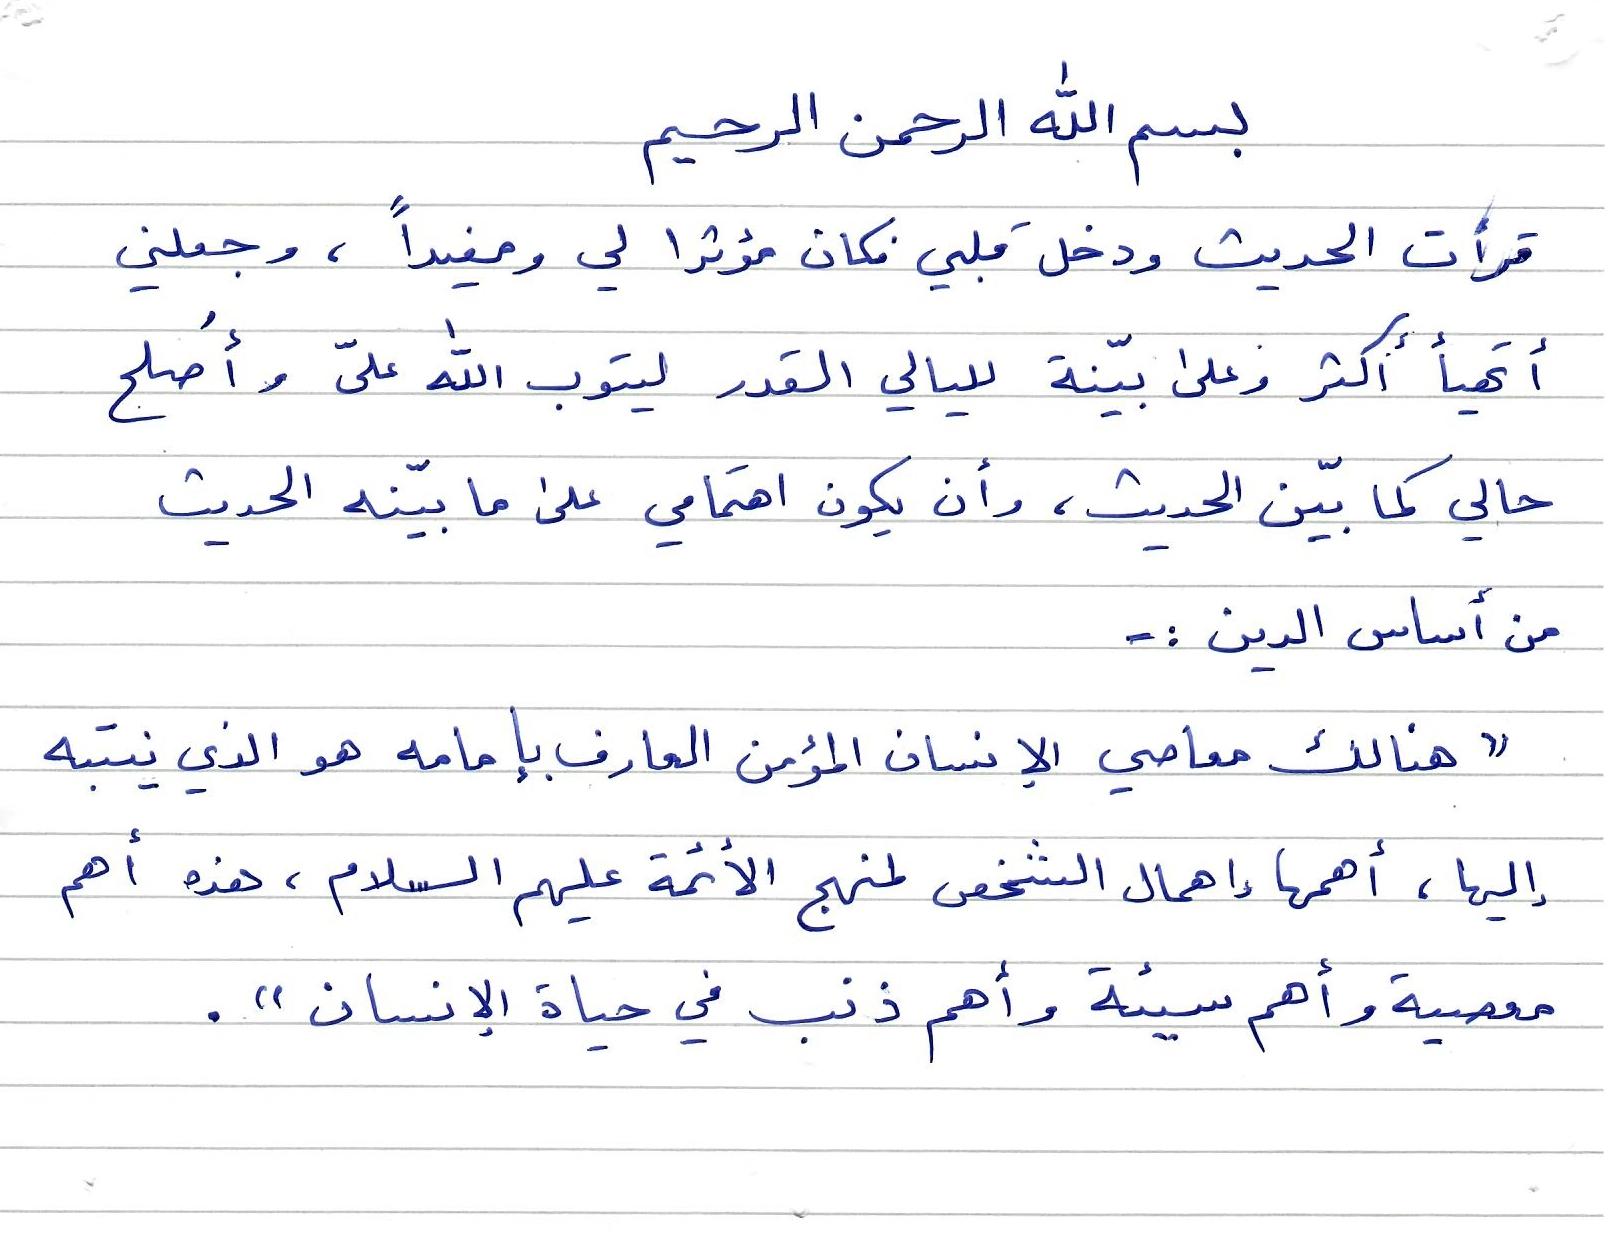 بسم الله الرحمن الرحيم
قرأت الحديث ودخل قلبي فكان مؤثرا لي ومفيداً ، وجعلني
أتهيأ أكثر وعلى بيّنة لليالي القدر ليتوب الله عليّ وأُصلح
حالي كما بيّن الحديث ، وأن يكون اهتمامي على ما بيّنه الحديث
من أساس الدين :-
" هنالك معاصي الإنسان المؤمن العارف بإمامه هو الذي ينتبه
إليها ، أهمها إهمال الشخص لمنهج الأئمة عليهم السلام ، هذه أهم
معصية وأهم سيئة وأهم ذنب في حياة الإنسان " .